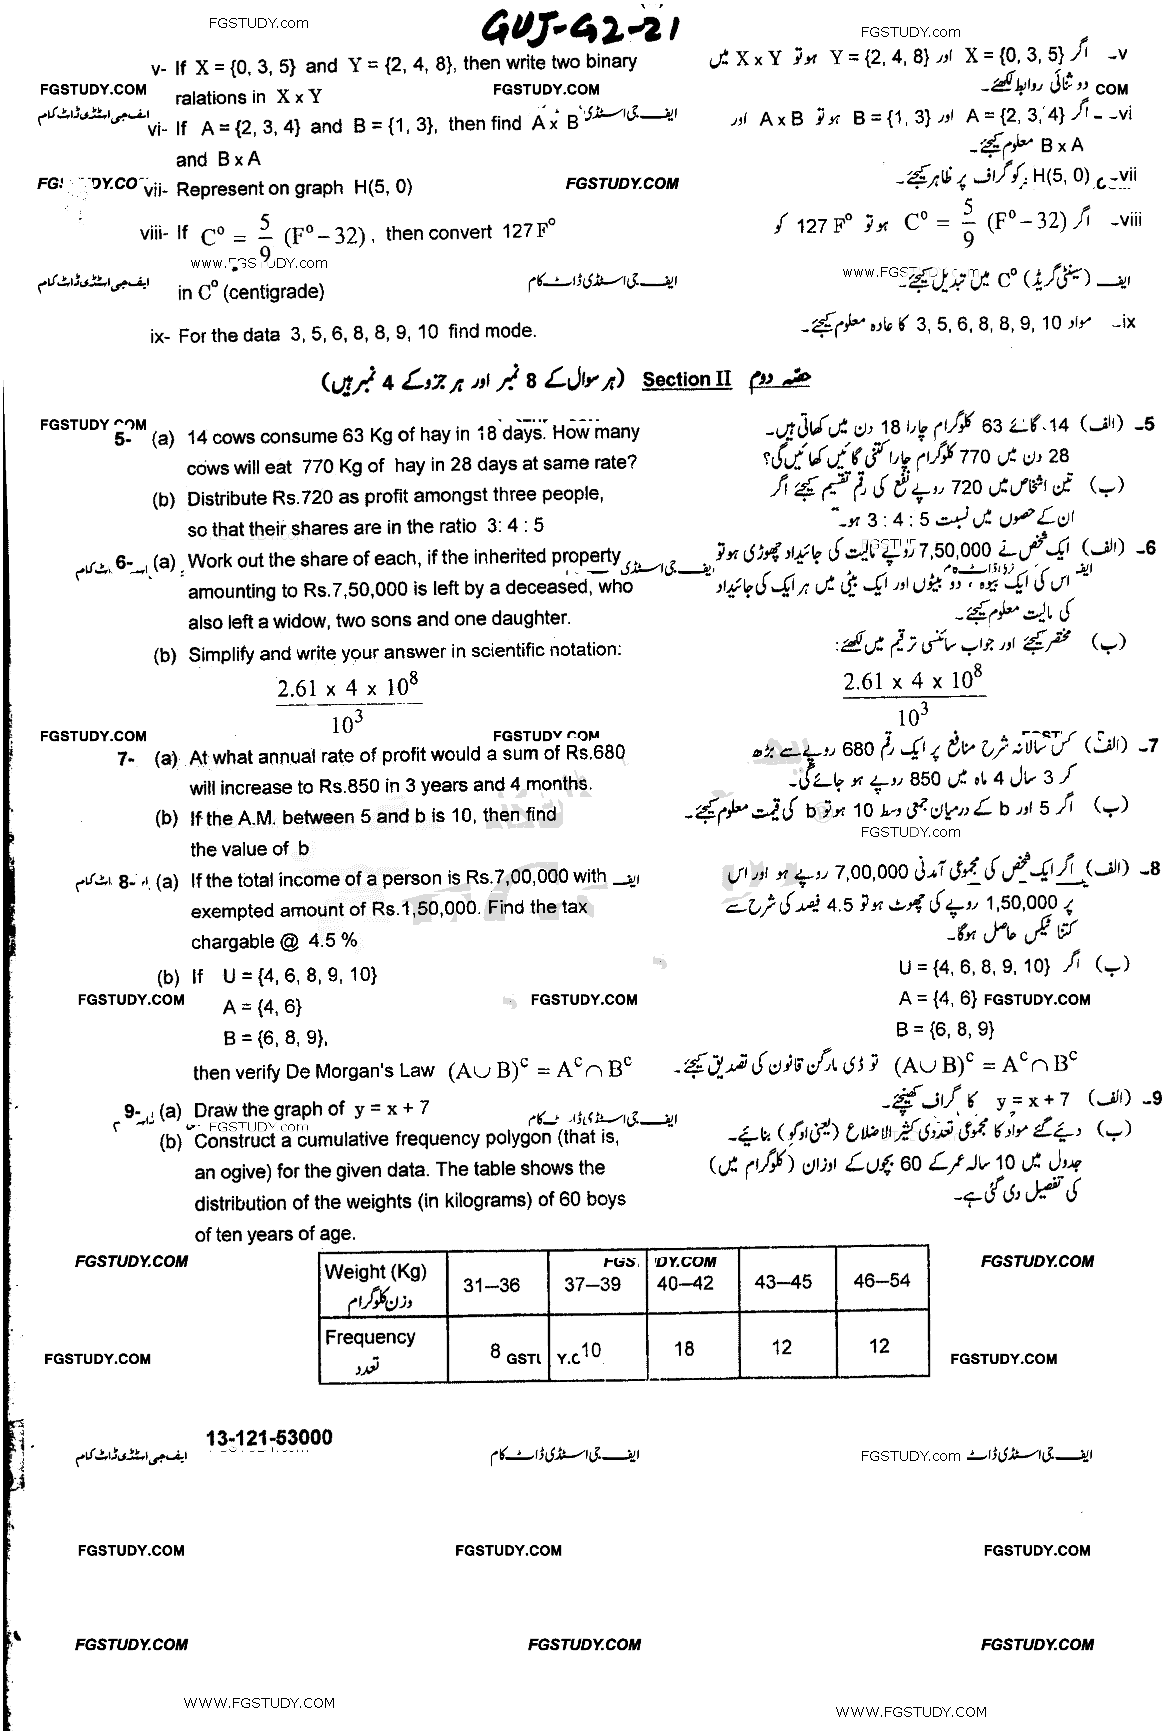 FGSTUDY.com
GUJ-G2-21
FGSTUDY.com
v- If X = {0, 3, 5} and Y = {2, 4, 8}, then write two binary
ralations in X x Y
v- اگر X = {0, 3, 5} اور Y = {2, 4, 8} ہو تو X x Y میں
دو ثنائی روابط لکھئے۔
FGSTUDY.COM FGSTUDY.COM COM
vi- If A = {2, 3, 4} and B = {1, 3}, then find A x B
and B x A
vi- اگر A = {2, 3, 4} اور B = {1, 3} ہو تو A x B اور
B x A معلوم کیجئے۔
ایف جی اسٹڈی ڈاٹ کام
vii- Represent on graph H(5, 0)
vii- H(5, 0) کو گراف پر ظاہر کیجئے۔
FGSTUDY.COM
viii- If C° = 5/9 (F° – 32), then convert 127 F°
in C° (centigrade)
viii- اگر C° = 5/9 (F° – 32) ہو تو 127 F° کو
(سینٹی گریڈ) C° میں تبدیل کیجئے۔
ایف جی اسٹڈی ڈاٹ کام ایف جی اسٹڈی ڈاٹ کام
ix- For the data 3, 5, 6, 8, 8, 9, 10 find mode.
ix- مواد 3, 5, 6, 8, 8, 9, 10 کا عادہ معلوم کیجئے۔
حصہ دوم Section II (ہر سوال کے 8 نمبر اور ہر جزو کے 4 نمبر ہیں)
5- (a) 14 cows consume 63 Kg of hay in 18 days. How many
cows will eat 770 Kg of hay in 28 days at same rate?
(b) Distribute Rs.720 as profit amongst three people,
so that their shares are in the ratio 3: 4 : 5
5- (الف) 14 گائے 63 کلوگرام چارا 18 دن میں کھاتی ہیں۔
28 دن میں 770 کلوگرام چارا کتنی گائیں کھائیں گی؟
(ب) تین اشخاص میں 720 روپے نفع کی رقم تقسیم کیجئے اگر
ان کے حصوں میں نسبت 3 : 4 : 5 ہو۔
6- (a) Work out the share of each, if the inherited property
amounting to Rs.7,50,000 is left by a deceased, who
also left a widow, two sons and one daughter.
(b) Simplify and write your answer in scientific notation:
2.61 x 4 x 10⁸
10³
6- (الف) ایک شخص نے 7,50,000 روپے مالیت کی جائیداد چھوڑی ہو تو
اس کی ایک بیوہ، دو بیٹوں اور ایک بیٹی میں ہر ایک کی جائیداد
کی مالیت معلوم کیجئے۔
(ب) مختصر کیجئے اور جواب سائنسی ترقیم میں لکھئے:
2.61 x 4 x 10⁸
10³
FGSTUDY.COM
7- (a) At what annual rate of profit would a sum of Rs.680
will increase to Rs.850 in 3 years and 4 months.
(b) If the A.M. between 5 and b is 10, then find
the value of b
7- (الف) کس سالانہ شرح منافع پر ایک رقم 680 روپے سے بڑھ
کر 3 سال 4 ماہ میں 850 روپے ہو جائے گی۔
(ب) اگر 5 اور b کے درمیان جمعی وسط 10 ہو تو b کی قیمت معلوم کیجئے۔
FGSTUDY.com
8- (a) If the total income of a person is Rs.7,00,000 with
exempted amount of Rs.1,50,000. Find the tax
chargable @ 4.5 %
(b) If U = {4, 6, 8, 9, 10}
A = {4, 6}
B = {6, 8, 9},
then verify De Morgan's Law (A∪B)ᶜ = Aᶜ∩Bᶜ
8- (الف) اگر ایک شخص کی مجموعی آمدنی 7,00,000 روپے ہو اور اس
پر 1,50,000 روپے کی چھوٹ ہو تو 4.5 فیصد کی شرح سے
کتنا ٹیکس حاصل ہوگا۔
(ب) اگر U = {4, 6, 8, 9, 10}
A = {4, 6}
B = {6, 8, 9}
(A∪B)ᶜ = Aᶜ∩Bᶜ تو ڈی مارگن قانون کی تصدیق کیجئے۔
FGSTUDY.COM FGSTUDY.COM FGSTUDY.COM
9- (a) Draw the graph of y = x + 7
(b) Construct a cumulative frequency polygon (that is,
an ogive) for the given data. The table shows the
distribution of the weights (in kilograms) of 60 boys
of ten years of age.
9- (الف) y = x + 7 کا گراف کھینچئے۔
(ب) دیئے گئے مواد کا مجموعی تعددی کثیر الاضلاع (یعنی اوگو) بنائیے۔
جدول میں 10 سالہ عمر کے 60 بچوں کے اوزان (کلوگرام میں)
کی تفصیل دی گئی ہے۔
FGSTUDY.COM FGSTUDY.COM
Weight (Kg) وزن کلوگرام 31–36 37–39 40–42 43–45 46–54
Frequency تعدد 8 10 18 12 12
FGSTUDY.COM FGSTUDY.COM
13-121-53000
ایف جی اسٹڈی ڈاٹ کام ایف جی اسٹڈی ڈاٹ کام FGSTUDY.com ایف جی اسٹڈی ڈاٹ
FGSTUDY.COM FGSTUDY.COM FGSTUDY.COM
FGSTUDY.COM FGSTUDY.COM FGSTUDY.COM
WWW.FGSTUDY.COM WWW.FGSTUDY.COM